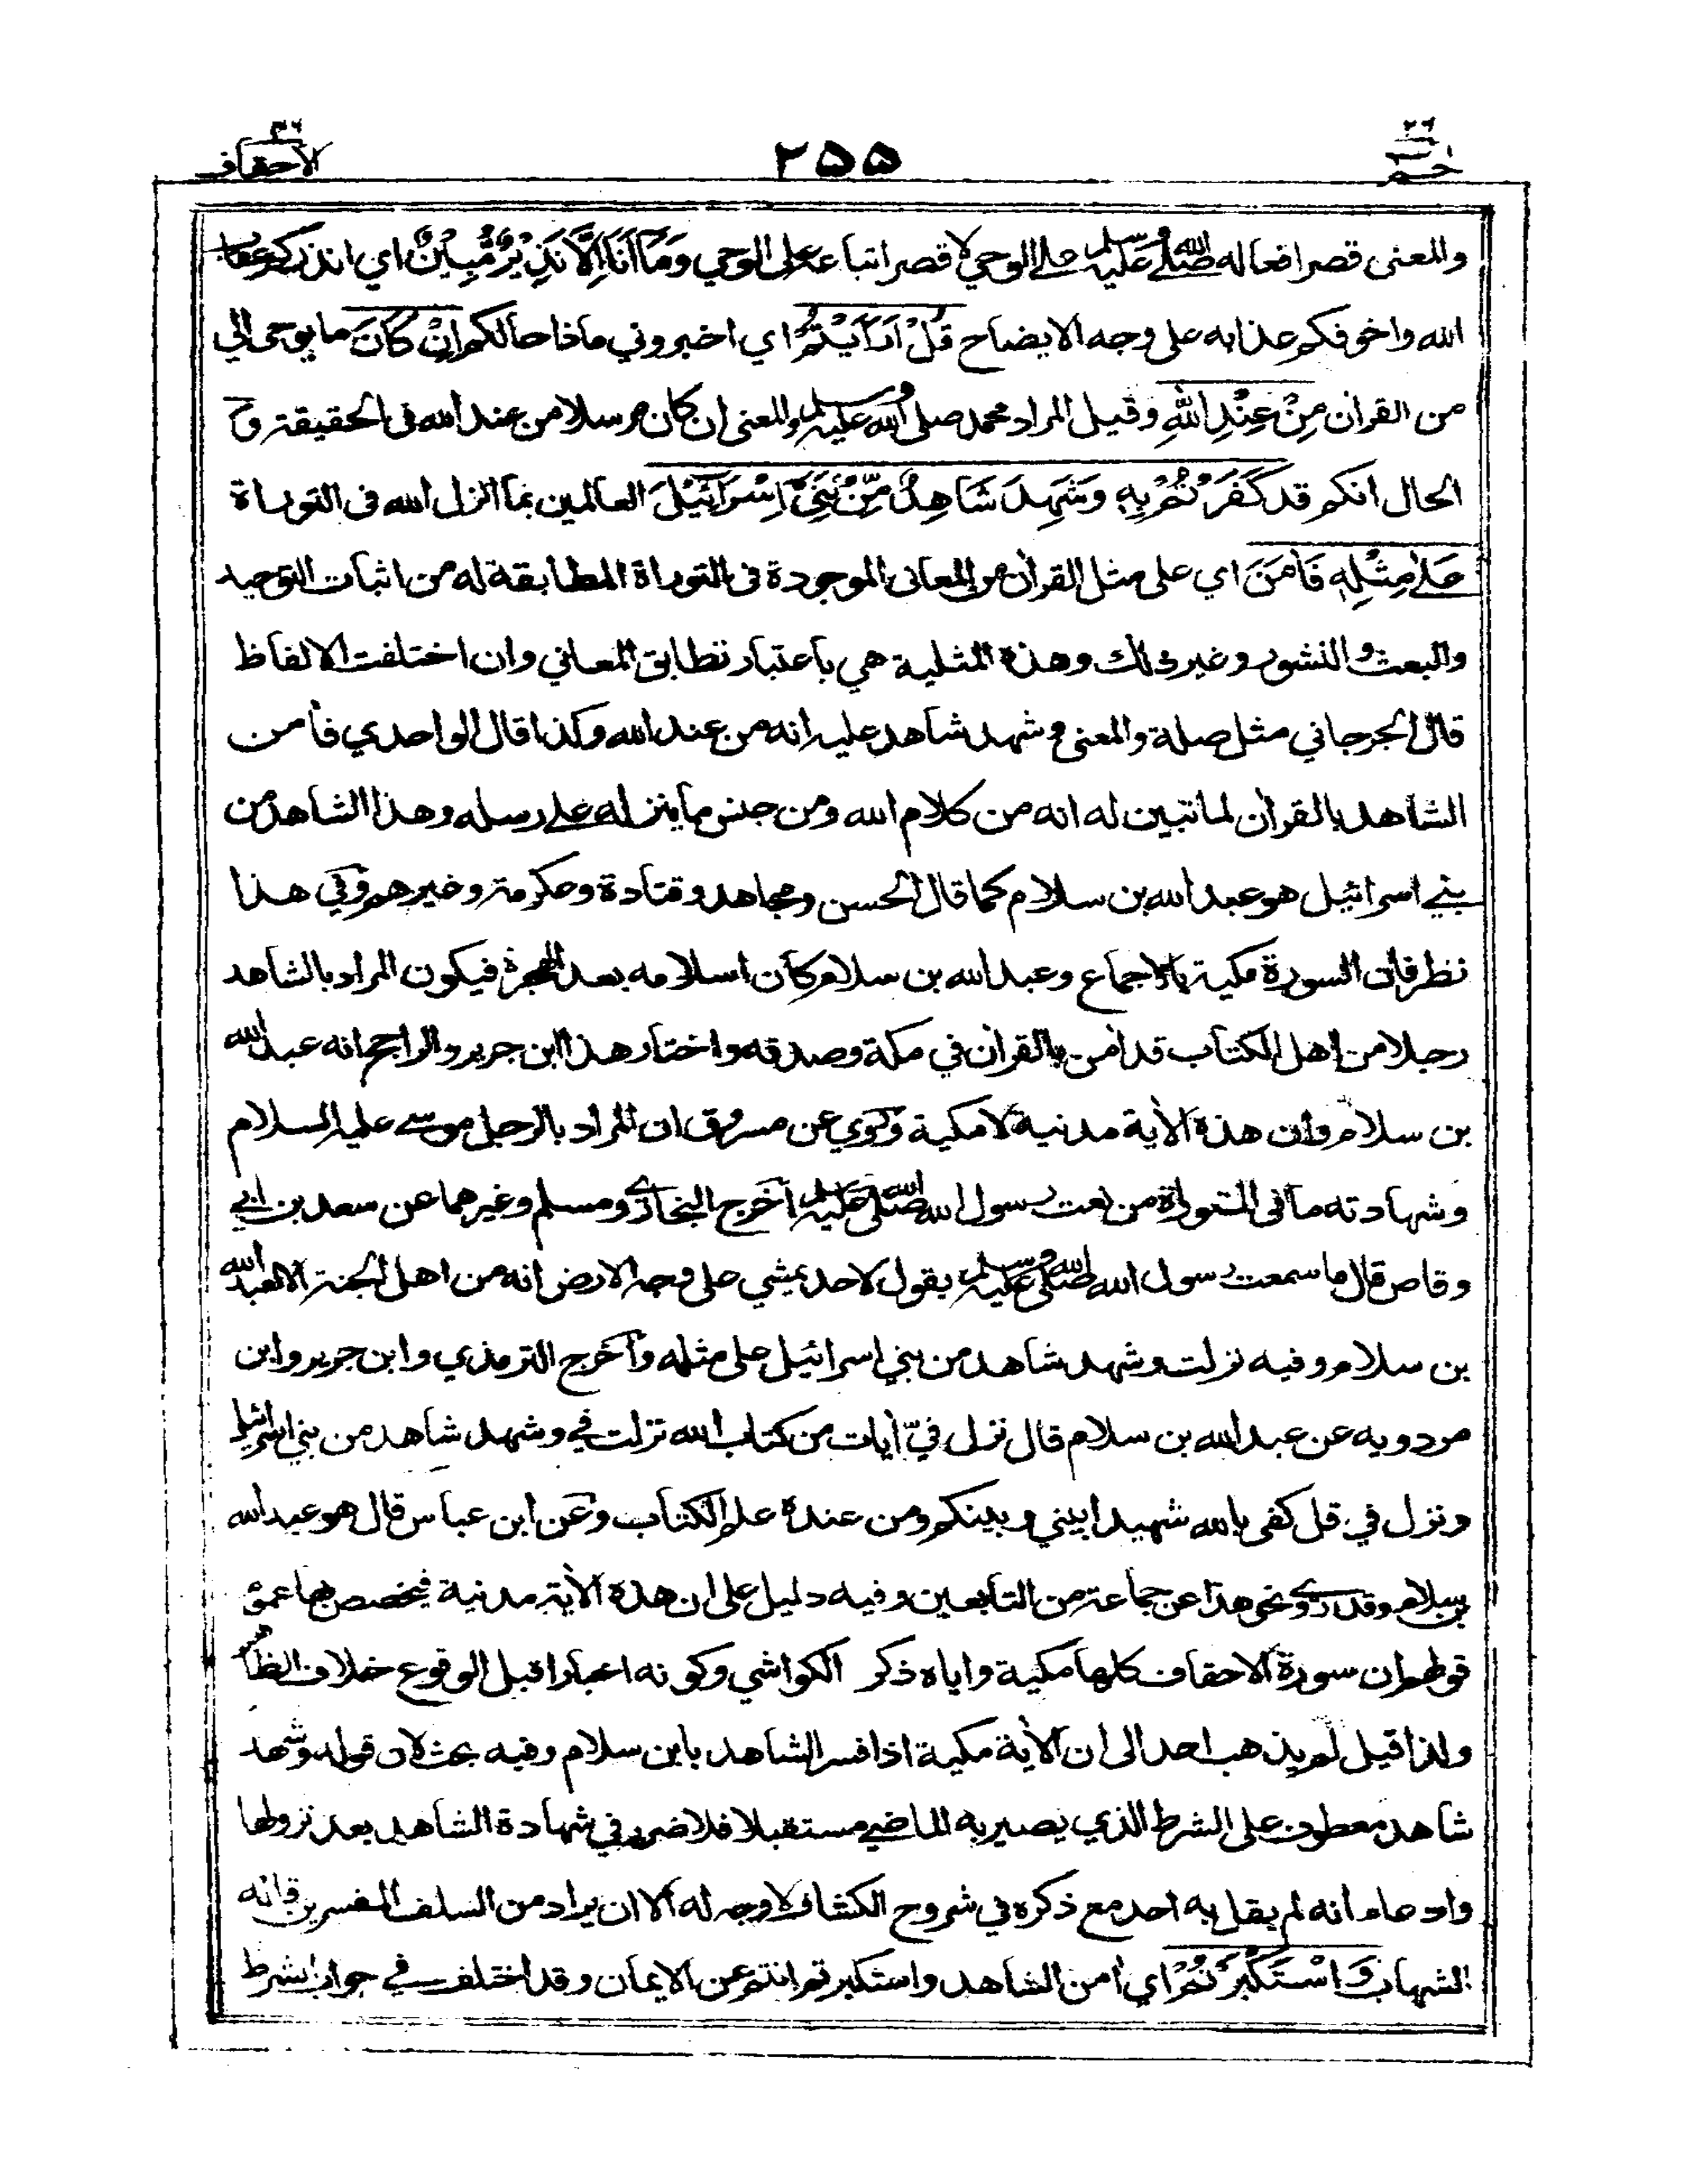 حم ٢٦
٢٥٥
الاحقاف ٤٦
والمعنى قصر افعاله صلى الله عليه وسلم على الوحي لا قصر اتباعه على الوحي وَمَآ أَنَا۠ إِلَّا نَذِيْرٌ مُّبِيْنٌ اي انذركم عقاب
الله واخوفكم عذابه على وجه الايضاح قُلْ اَرَاَيْتُمْ اي اخبروني ماذا حالكم اِنْ كَانَ ما يوحى الي
من القرأن مِنْ عِنْدِ اللّٰهِ وقيل المراد محمد صلى الله عليه وسلم والمعنى ان كان مرسلا من عند الله فى الحقيقة وَ
الحال انكم قد كَفَرْتُمْ بِهٖ وَشَهِدَ شَاهِدٌ مِّنْۢ بَنِيْٓ اِسْرَآئِيْلَ العالمين بما انزل الله فى التوراة
عَلٰى مِثْلِهٖ فَاٰمَنَ اي على مثل القرأن من المعانى الموجودة فى التوراة المطابقة له من اثبات التوحيد
والبعث والنشور وغير ذلك وهذه المثلية هي باعتبار تطابق المعاني وان اختلفت الالفاظ
قال الجرجاني مثل صلة والمعنى وشهد شاهد عليه انه من عند الله وكذا قال الواحدي فأمن
الشاهد بالقرأن لما تبين له انه من كلام الله ومن جنس ما ينزله على رسله وهذا الشاهد من
بني اسرائيل هو عبد الله بن سلام كما قال الحسن ومجاهد وقتادة وعكرمة وغيرهم وفي هذا
نظر فان السورة مكية بالاجماع وعبد الله بن سلام كان اسلامه بعد الهجرة فيكون المراد بالشاهد
رجلا من اهل الكتاب قد أمن بالقرأن في مكة وصدقه واختار هذا ابن جرير والراجح انه عبد الله
بن سلام وان هذه الأية مدنية لا مكية وروي عن مسروق ان المراد بالرجل موسى عليه السلام
وشهادته ما فى التوراة من نعت رسول الله صلى الله عليه وسلم أخرج البخاري ومسلم وغيرهما عن سعد بن ابي
وقاص قال ما سمعت رسول الله صلى الله عليه وسلم يقول لاحد يمشي على وجه الارض انه من اهل الجنة الا لعبد الله
بن سلام وفيه نزلت وشهد شاهد من بني اسرائيل على مثله وأخرج الترمذي وابن جرير وابن
مردويه عن عبد الله بن سلام قال نزل فيّ أيات من كتاب الله نزلت في وشهد شاهد من بني اسرائيل
ونزل في قل كفى بالله شهيدا بيني وبينكم ومن عنده علم الكتاب وعن ابن عباس قال هو عبد الله
بن سلام وقد روي نحو هذا عن جماعة من التابعين وفيه دليل على ان هذه الأية مدنية فيخصص بها عموم
قولهم ان سورة الاحقاف كلها مكية واياه ذكر الكواشي وكونه اخبارا قبل الوقوع خلاف الظاهر
ولذا قيل لم يذهب احد الى ان الأية مكية اذا فسر الشاهد بابن سلام وفيه بحث لان قوله وشهد
شاهد معطوف على الشرط الذي يصير به الماضي مستقبلا فلا ضرر في شهادة الشاهد بعد نزولها
وادعاء انه لم يقل به احد مع ذكره في شروح الكشاف لا وجه له الا ان يراد من السلف المفسرين قاله
الشهاب وَاسْتَكْبَرْتُمْ اي أمن الشاهد واستكبرتم انتم عن الايمان وقد اختلف في جواب الشرط